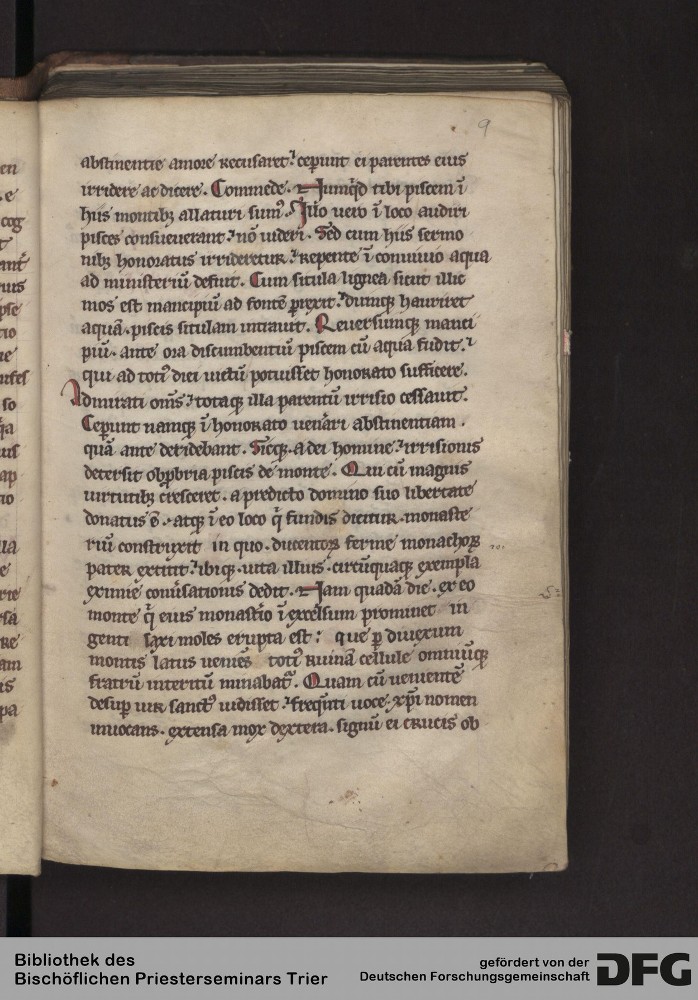 9
abstinentie amore recusaret. ceperunt ei parentes eius
irridere ac dicere. Commede. Numq̇d tibi piscem ī
hiis montibꝫ allaturi sumꝰ. Illo uero ī loco audiri
pisces consueuerant. nō uideri. Sed cum hiis sermo
nibꝫ honoratus irrideretur. repente ī conuiuio aqua
ad ministeriū defuit. Cum situla lignea sicut illic
mos est mancipiū ad fontē ꝑrexit. dumqꝫ hauriret
aquā. piscis situlam intrauit. Reuersumqꝫ manci
piū. ante ora discumbentiū piscem cū aqua fudit.
qui ad totiꝰ diei uictū potuisset honorato sufficere.
Admirati om̄s. totaqꝫ illa parentū irrisio cessauit.
Ceperunt namqꝫ ī honorato uen̄ari abstinentiam.
quā ante deridebant. Sicqꝫ a dei homine. irrisionis
detersit obꝓbria piscis de monte. Qui cū magnis
uirtutibꝫ cresceret. a predicto domino suo libertate
donatus ē. atqꝫ ī eo loco q̇ fundis dicitur. monaste
riū construxit in quo. ducentoꝝ ferme monachoꝝ
pater extitit. ibiqꝫ uita illius. circūquaqꝫ exempla
eximie conūsationis dedit. Nam quadā die. ex eo
monte q̇ eius monast̄io ī excelsum prominet in
genti saxi moles erupta est: que ꝑ diuexum
montis latus ueniēs totiꝰ ruinā cellule omniūqꝫ
fratrū interitū minabat᷑. Quam cū uenientē
desuꝑ uir sanctꝰ uidisset. freq̄nti uoce. xp̄i nomen
inuocans. extensa mox dextera. signū ei crucis ob
Bibliothek des
Bischöflichen Priesterseminars Trier
gefördert von der
Deutschen Forschungsgemeinschaft
DFG